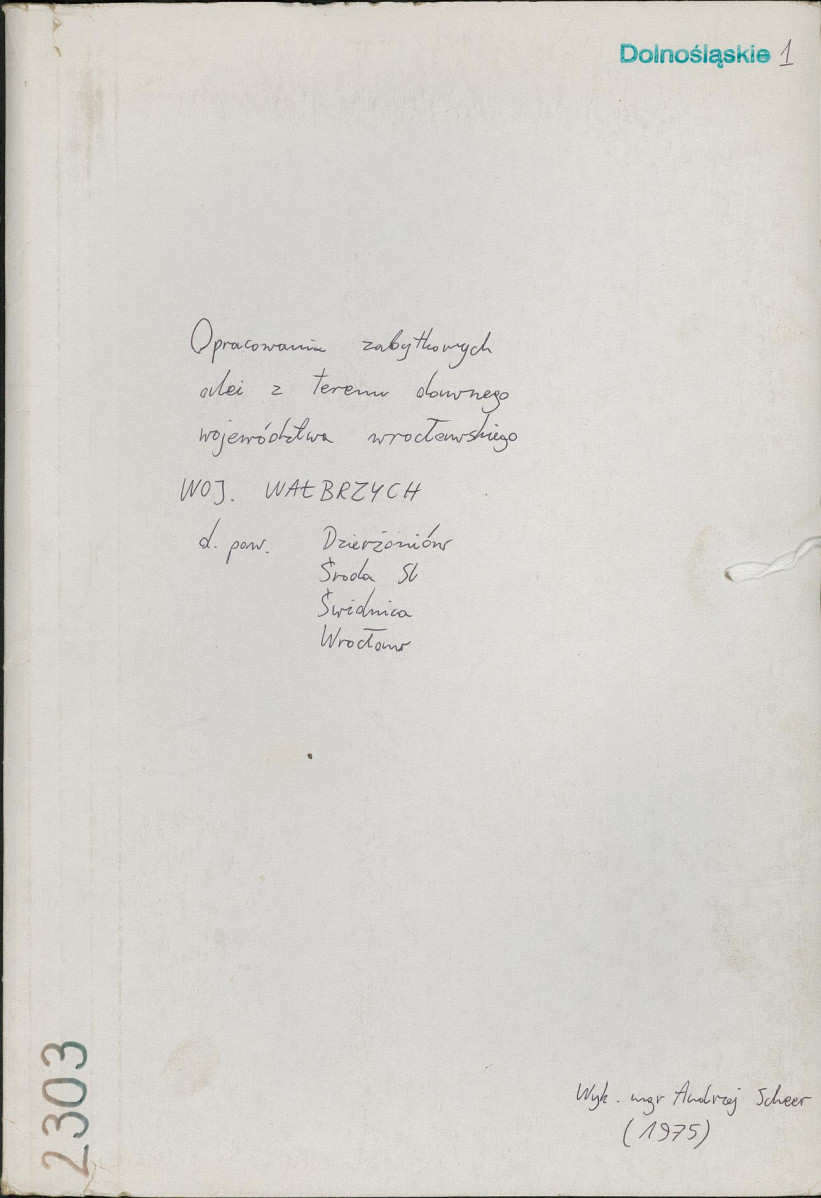 Dolnośląskie 1
Opracowanie zabytkowych
alei z terenu dawnego
województwa wrocławskiego
WOJ. WAŁBRZYCH
d. pow. Dzierżoniów
Środa Śl
Świdnica
Wrocław
2303
Wyk. mgr Andrzej Scheer
(1975)